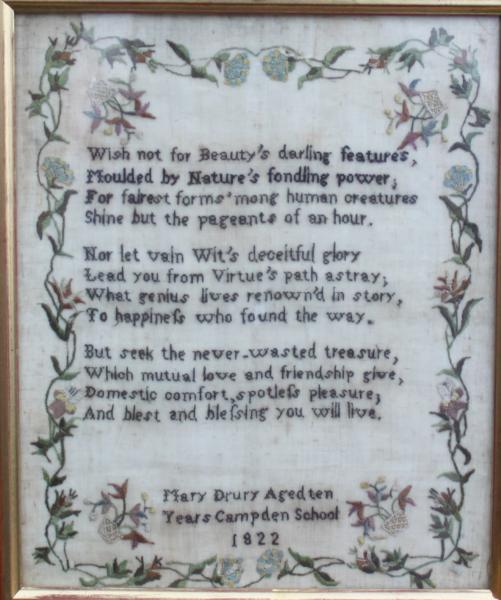 Wish not for Beauty's darling features,
Moulded by Nature's fondling power;
For fairest forms 'mong human creatures
Shine but the pageants of an hour.
Nor let vain Wit's deceitful glory
Lead you from Virtue's path astray;
What genius lives renown'd in story,
To happineſs who found the way.
But seek the never-wasted treasure,
Which mutual love and friendship give,
Domestic comfort, spotleſs pleasure;
And blest and bleſsing you will live.
Mary Drury Aged ten
Years Campden School
1822